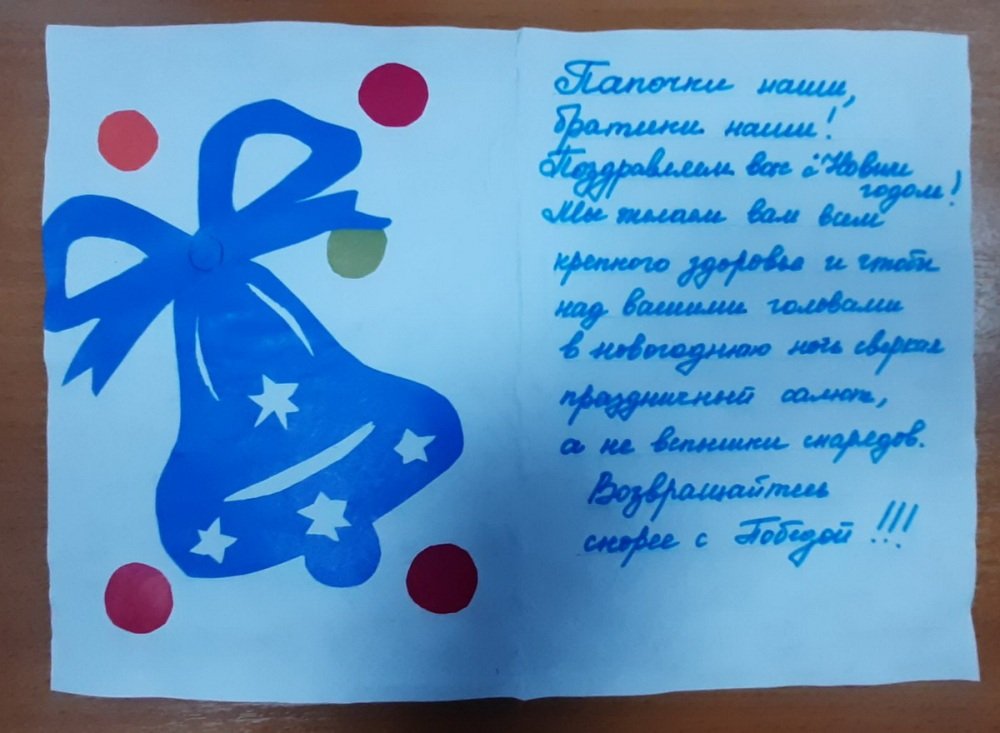 Папочки наши,
братики наши!
Поздравляем вас с Новым
годом!
Мы желаем вам всем
крепкого здоровья и чтобы
над вашими головами
в новогоднюю ночь сверкал
праздничный салют,
а не вспышки снарядов.
Возвращайтесь
скорее с Победой!!!